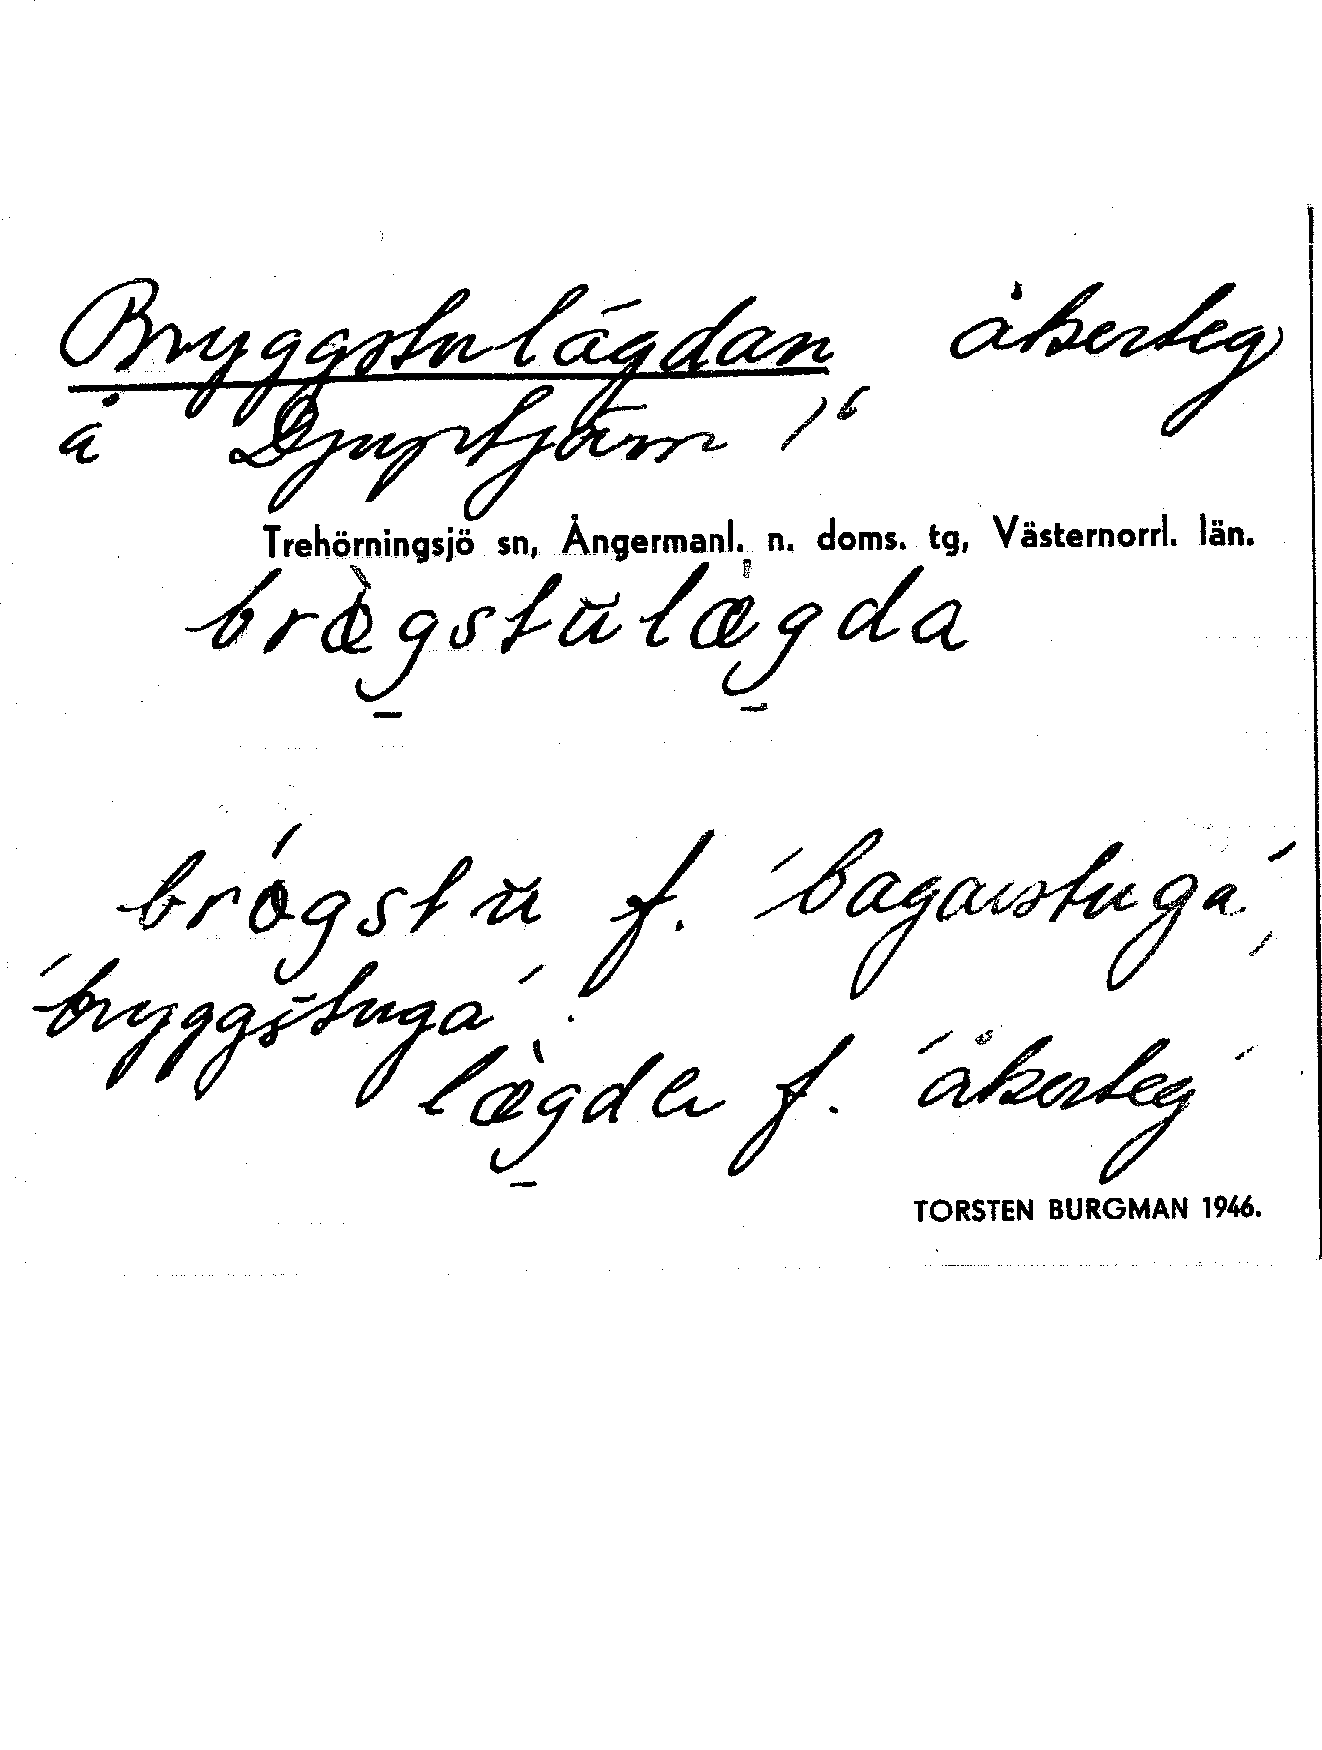 Bryggstulägdan åkerteg
å Djuptjärn 1⁶
Trehörningsjö sn, Ångermanl. n. doms. tg, Västernorrl. län.
brø̀gstŭlæ̀gda
brǿgstŭ f. 'bagarstuga',
'bryggstuga'.
læ̀gdɐ f. 'åkerteg'
TORSTEN BURGMAN 1946.